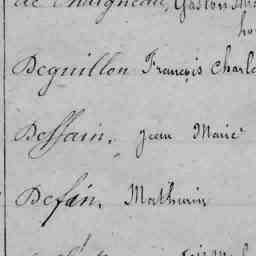 de Chaigneau, Gaston
Deguillon François Charl
Dessain, Jean Marie
Defin, Mathurin